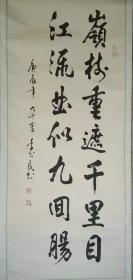 嶺樹重遮千里目
江流曲似九回腸
庚辰年九十叟